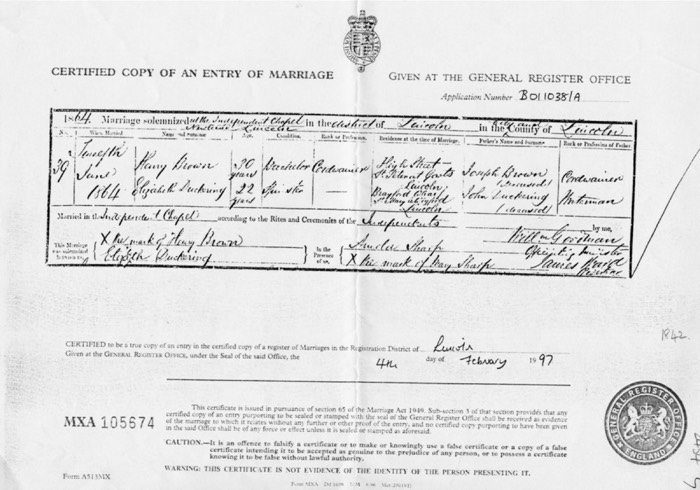 CERTIFIED COPY OF AN ENTRY OF MARRIAGE
GIVEN AT THE GENERAL REGISTER OFFICE
Application Number BO11038/A
1864 Marriage solemnized at the Independent Chapel in the district of Lincoln in the County of Lincoln
Lincoln
No. When Married Name and Surname Age Condition Rank or Profession Residence at the time of Marriage Father's Name and Surname Rank or Profession of Father
39 Twelfth June 1864
Henry Brown 30 years Bachelor Cordwainer High Street Lincoln Joseph Brown (deceased) Cordwainer
Elizabeth Duckering 22 years Spinster — Lincoln John Duckering (deceased)
Married in the Independent Chapel according to the Rites and Ceremonies of the Independents by me,
This Marriage was solemnized between us,
X the mark of Henry Brown
Elizbeth Duckering
in the Presence of us,
Sharp
X the mark of Mary Sharp
Willm Goodman
Officiating Minister
James Ward
CERTIFIED to be a true copy of an entry in the certified copy of a register of Marriages in the Registration District of Lincoln
Given at the GENERAL REGISTER OFFICE, under the Seal of the said Office, the 4th day of February 1997
1842
MXA 105674
This certificate is issued in pursuance of section 65 of the Marriage Act 1949. Sub-section 3 of that section provides that any
certified copy of an entry purporting to be sealed or stamped with the seal of the General Register Office shall be received as evidence
of the marriage to which it relates without any further or other proof of the entry, and no certified copy purporting to have been given
in the said Office shall be of any force or effect unless it is sealed or stamped as aforesaid.
CAUTION.—It is an offence to falsify a certificate or to make or knowingly use a false certificate or a copy of a false
certificate intending it to be accepted as genuine to the prejudice of any person, or to possess a certificate
knowing it to be false without lawful authority.
WARNING: THIS CERTIFICATE IS NOT EVIDENCE OF THE IDENTITY OF THE PERSON PRESENTING IT.
GENERAL REGISTER OFFICE
ENGLAND
Form A513MX